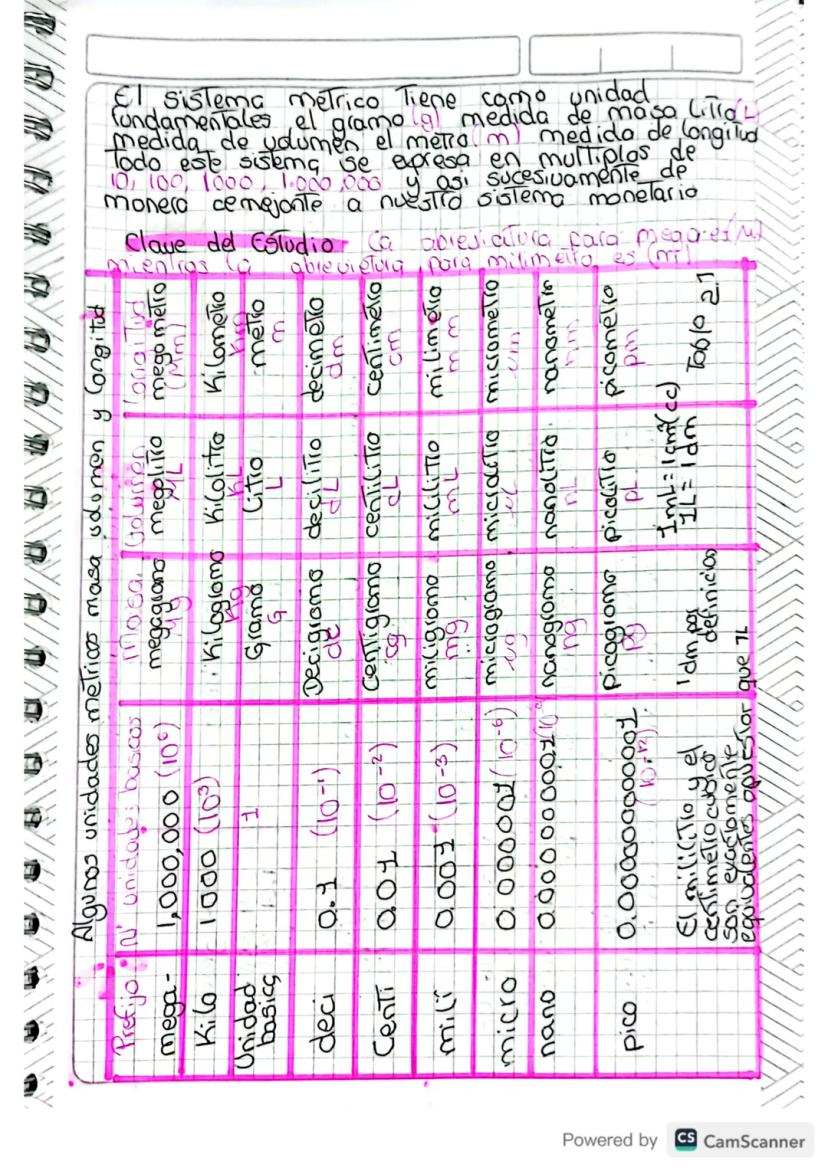 El sistema metrico Tiene como unidad
fundamentales el gramo (g) medida de masa LiTro (L)
medida de volumen el metro (m) medida de Longitud
Todo este sistema se expresa en multiplos de
10, 100, 1000, 1.000,000 y asi sucesivamente de
manera cemejante a nuestro sistema monetario
Clave del Estudio La abreviatura para mega es (M)
mientras la abrevietura para milimetro es (m)
Algunas unidades metricas masa volumen y Longitud
Prefijo N° unidades basicas Masa Volumen Longitud
mega- 1,000,000 (10⁶) megagramo Mg megalitro ML megametro (Mm)
Kilo 1000 (10³) Kilogramo Kg Kilolitro KL Kilometro Km
Unidad basica 1 Gramo G LiTro L metro m
deci 0.1 (10⁻¹) Decigramo dG deciliTro dL decimetro dm
CenTi 0.01 (10⁻²) CenTigramo cg centiliTro cL cenTimetro cm
mili 0.001 (10⁻³) miligramo mg mililiTro mL milimetro mm
micro 0.000001 (10⁻⁶) microgramo ug microliTro uL micrometro um
nano 0.000000001 (10⁻⁹) nanogramo ng nanoliTro nL nanometro nm
pico 0.000000000001 (10⁻¹²) picogramo pg picoliTro pL picometro pm
El mililiTro y el
cenTimetro cubico
son exactamente
equivalentes
que 1L
1dm por
definicion
1mL = 1cm³ (cc)
1L = 1dm
Tabla 2.1
Powered by CS CamScanner